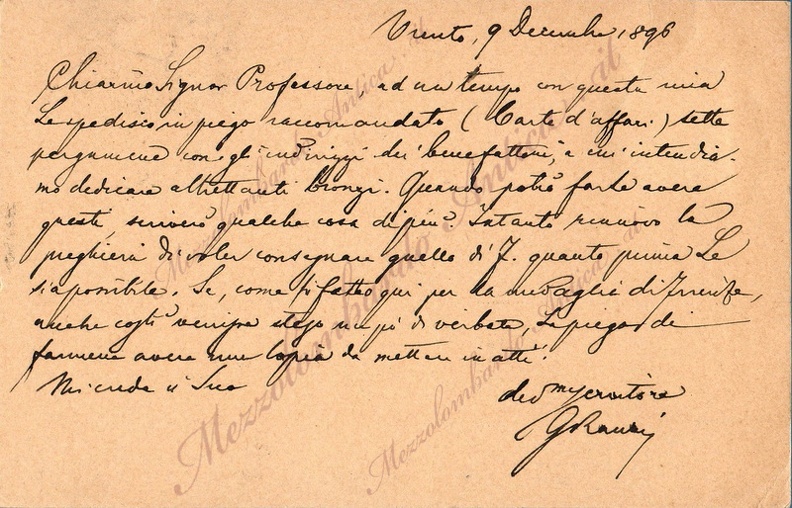 Trento, 9 Decembre 1896
Chiarmo Signor Professore, ad un tempo con questa mia
Le spedisco in piego raccomandato (Carte d'affari) sette
pergamene con gli indirizzi dei benefattori, a cui intendia-
mo dedicare altrettanti bronzi. Quando potrò farle avere
questi, scriverò qualche cosa di più. Intanto rinnovo la
preghiera di voler consegnare quello di F. quanto prima Le
sia possibile. Se, come fu fatto qui per la medaglia di Firenze,
anche costì venisse steso un po' di verbale, La prego di
farmene avere una copia da mettere in atti.
Mi creda il Suo
devmo servitore
Mezzolombardo Antica
Mezzolombardo Antica
Mezzolombardo Antica .it